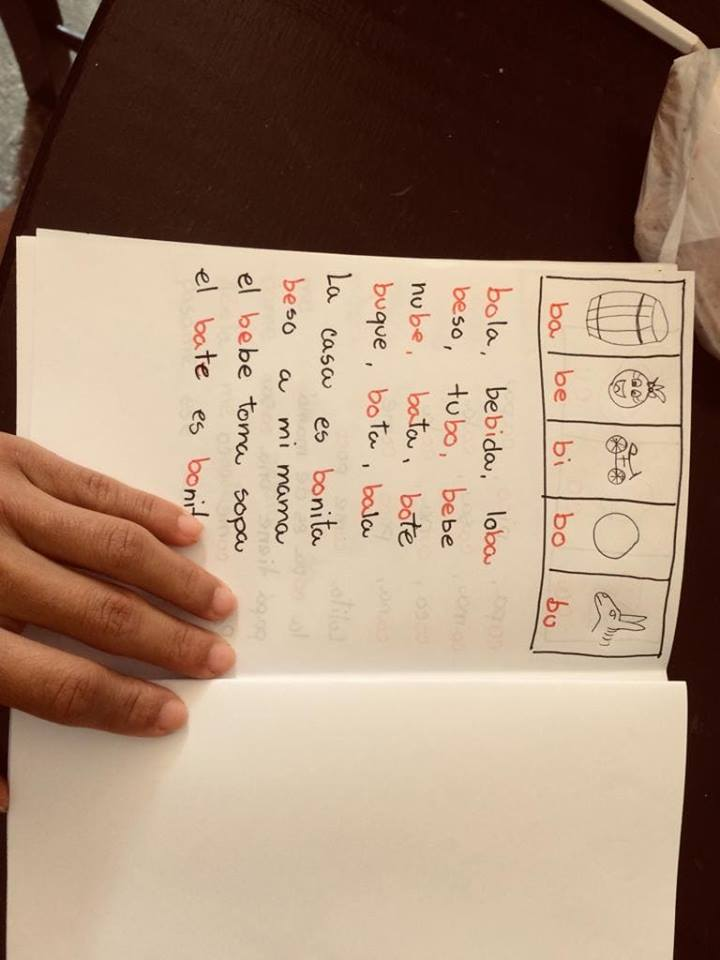 ba be bi bo bu
bola, bebida, loba
beso, tubo, bebe
nube, bata, bote
buque, bota, bala
La casa es bonita
beso a mi mama
el bebe toma sopa
el bate es